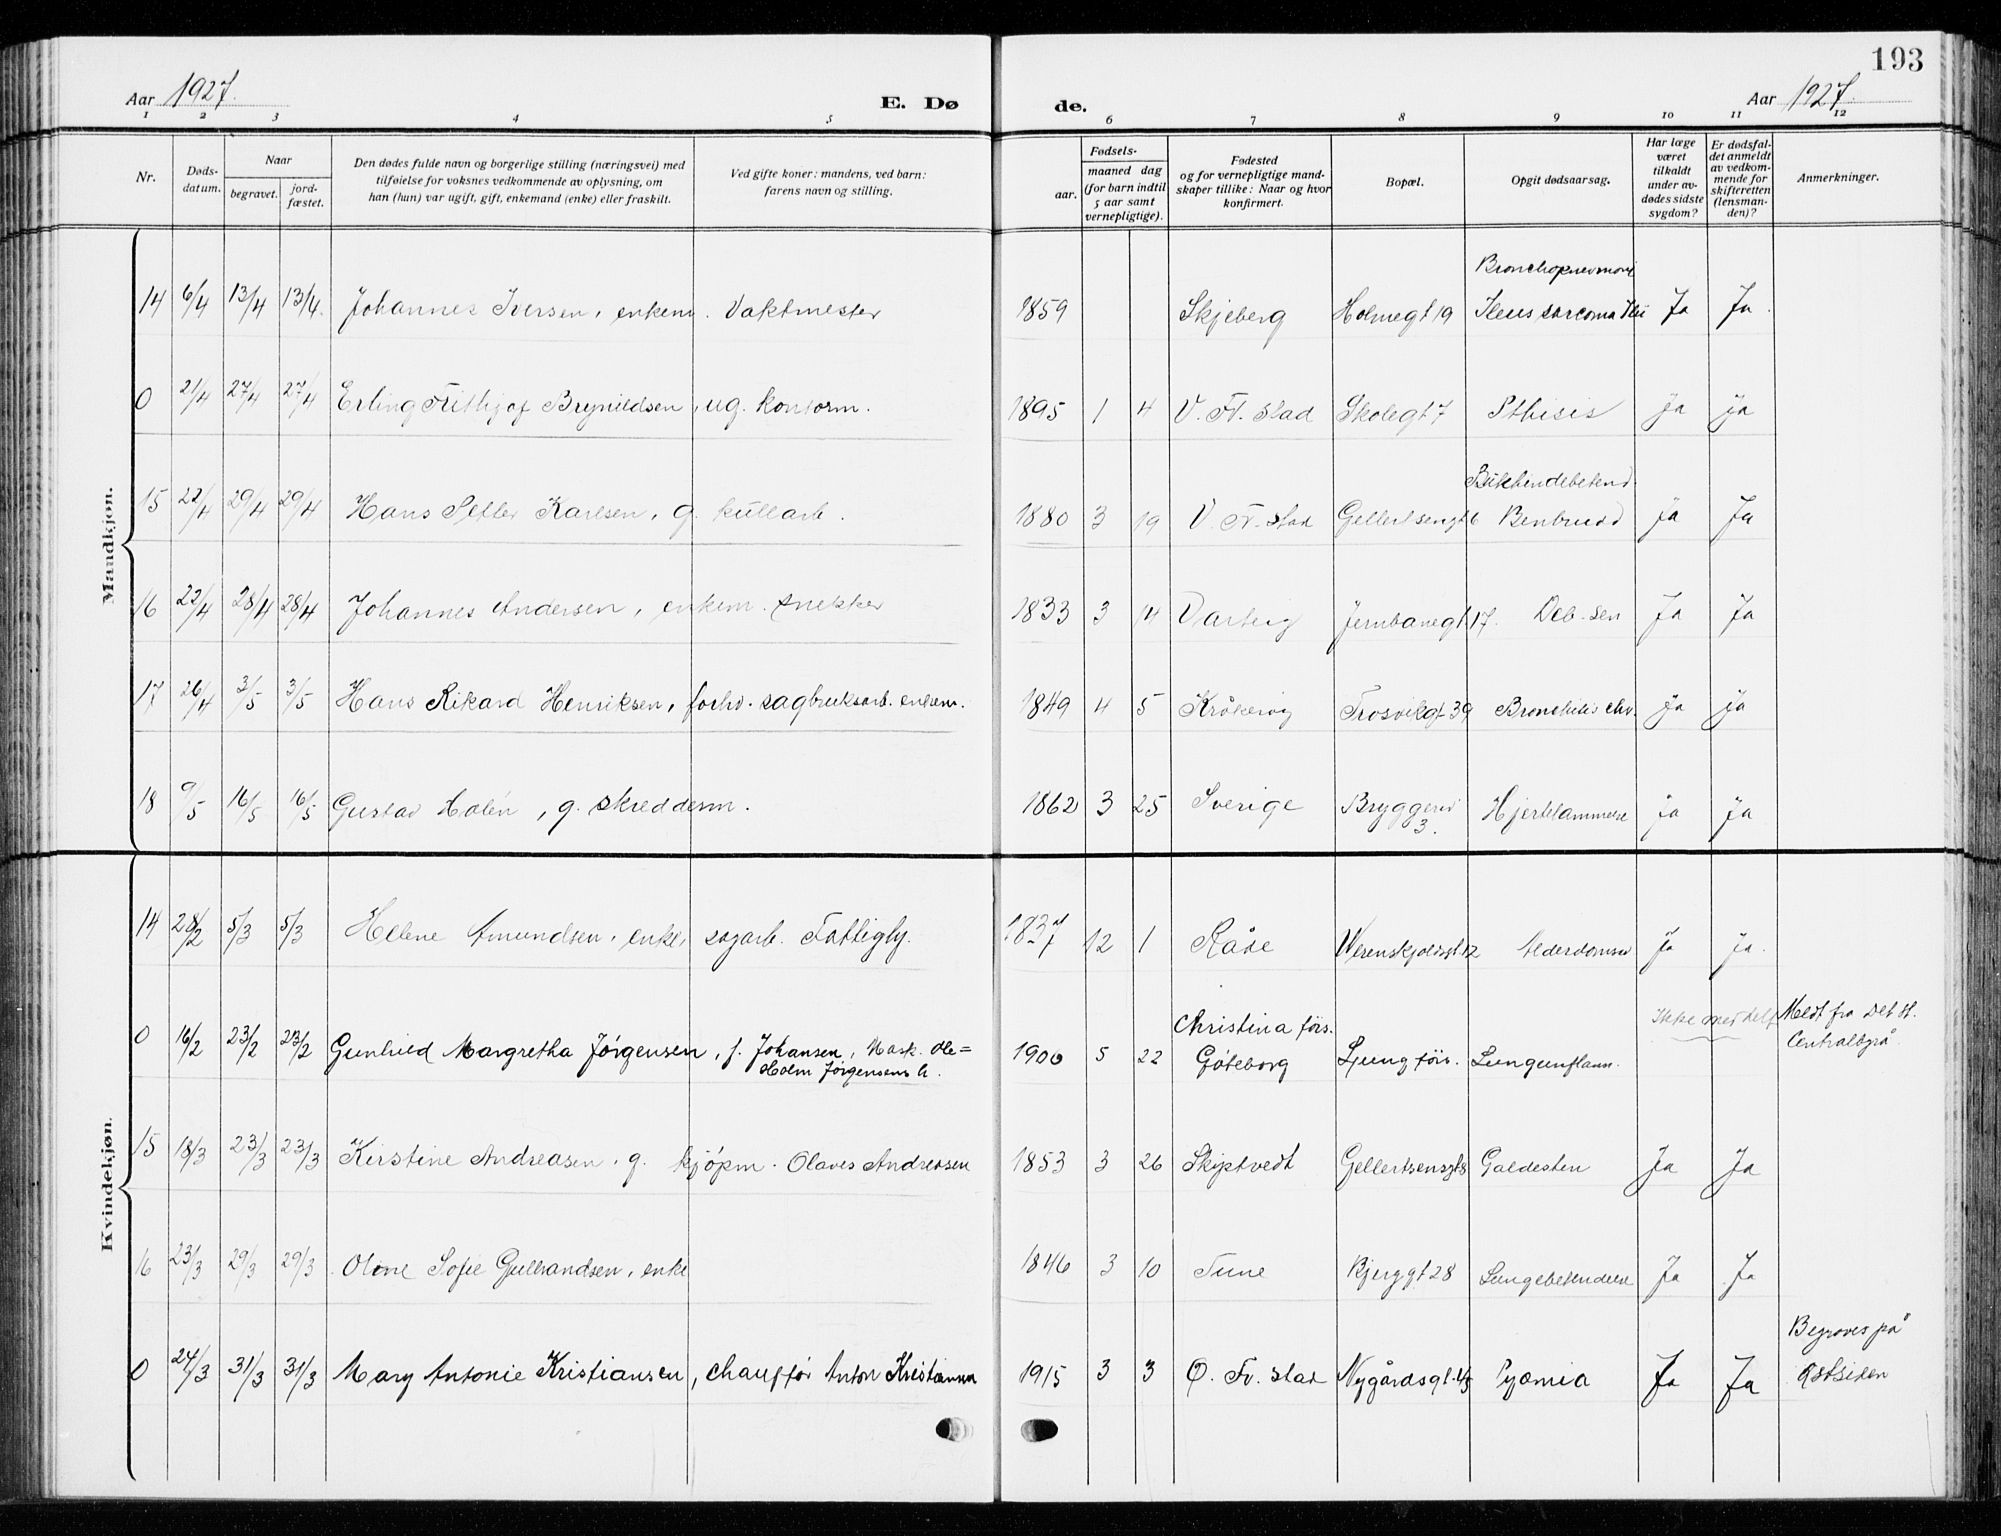 193
Aar 1927.
E. Dø
de.
Aar 1927.
1 2 3 4 5 6 7 8 9 10 11 12
Nr.
Døds-
datum.
Naar
begravet.
jord-
fæstet.
Den dødes fulde navn og borgerlige stilling (næringsvei) med
tilføielse for voksnes vedkommende av oplysning, om
han (hun) var ugift, gift, enkemand (enke) eller fraskilt.
Ved gifte koner: mandens, ved barn:
farens navn og stilling.
Fødsels-
aar.
maaned dag
(for barn indtil
5 aar samt
vernepligtige).
Fødested
og for vernepligtige mand-
skaper tillike: Naar og hvor
konfirmert.
Bopæl.
Opgit dødsaarsag.
Har læge
været
tilkaldt
under av-
dødes sidste
sygdom?
Er dødsfal-
det anmeldt
av vedkom-
mende for
skifteretten
(lensman-
den)?
Anmerkninger.
Mandkjøn.
Bronchopnevmoni
14 6/4 13/4 13/4. Johannes Iversen, enkem. Vaktmester 1859 Skjeberg Holmegt 19 Ileus sarcoma Ilii Ja Ja.
0 21/4 27/4 27/4 Erling Frithjof Brynildsen, ug. kontorm. 1895 1 4 V. Fr. stad Skolegt 7 Pthisis Ja Ja
Bukhindebetend.
15 22/4 29/4 29/4 Hans Petter Karlsen, g. kullarb. 1880 3 19 V. Fr. stad Gellertsengt 6 Benbrudd Ja Ja
16 22/4 28/4 28/4 Johannes Andersen, enkem. snekker 1833 3 14 Varteig Jernbanegt. 17. Deb. sen Ja Ja
17 26/4 3/5 3/5 Hans Rikard Henriksen, forhv. sagbruksarb. enkem. 1849 4 5 Kråkerøy Trosvikgt 39 Bronchitis chr. Ja Ja
18 9/5 16/5 16/5 Gustav Holén, g. skredderm. 1862 3 25 Sverige Bryggeriv Hjertelammelse Ja Ja
3.
Kvindekjøn.
14 28/2 5/3 5/3 Helene Amundsen, enke, sagarb. Fattigly. 1837 12 1 Råde Werenskjoldsgt. 12 Alderdomssv Ja Ja.
0 16/2 23/2 23/2 Gunhild Margretha Jørgensen, f. Johansen, Mask. Ole= 1900 5 22 Christina förs. Ljung förs. Lungenflamm. Ikke meddelt Meldt fra Det st.
Holm Jørgensens h. Göteborg Centralbyrå.
15 18/3 23/3 23/3 Kirstine Andreasen, g. kjøpm. Olaves Andreasen 1853 3 26 Skiptvedt Gellertsensgt 8 Galdesten Ja Ja
16 23/3 29/3 29/3 Oline Sofie Gulbrandsen, enke 1846 3 10 Tune Bjerggt 28 Lungebetendelse Ja Ja
0 24/3 31/3 31/3 Mary Antonie Kristiansen, chauffør Anton Kristiansen 1915 3 3 Ø. Fr. stad Nygårdsgt. Pyæmia Ja Ja Begraves på
Østsiden